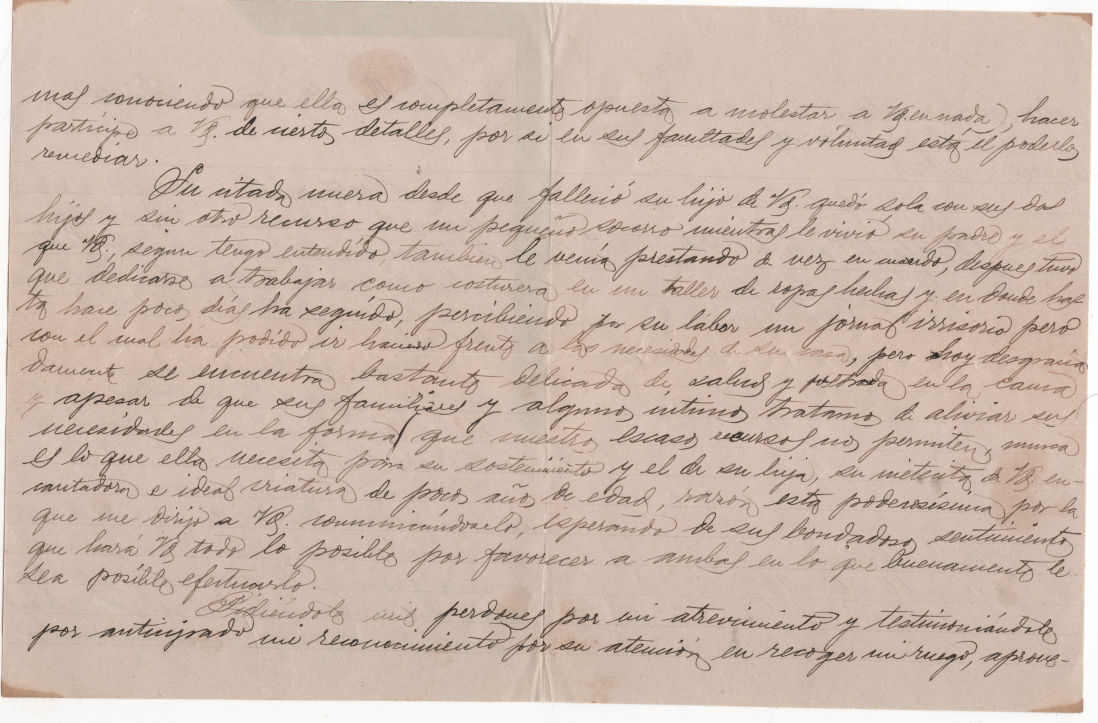 mas conociendo que ella es completamente opuesta a molestar a Vd. en nada), hacer
participe a Vd. de ciertos detalles, por si en sus facultades y voluntad está el poderlo
remediar.
Su citada nuera desde que falleció su hijo de Vd. quedó sola con sus dos
hijos y sin otro recurso que un pequeño socorro mientras le vivió su padre y el
que Vd., segun tengo entendido, tambien le venía prestando de vez en cuando, despues tuvo
que dedicarse a trabajar como costurera en un taller de ropas hechas y en donde has-
ta hace pocos días ha seguido, percibiendo por su labor un jornal irrisorio pero
con el cual ha podido ir haciendo frente a las necesidades de su casa, pero hoy desgracia-
damente se encuentra bastante delicada de salud y postrada en la cama
y apesar de que sus familiares y algunos íntimos tratamos de aliviar sus
necesidades en la forma que nuestros escasos recursos nos permiten, nunca
es lo que ella necesita para su sostenimiento y el de su hija, su nietecita de Vd. en-
cantadora e ideal criatura de pocos años de edad, razón esta poderosísima por la
que me dirijo a Vd. comunicándoselo, esperando de sus bondadosos sentimientos
que hará Vd. todo lo posible por favorecer a ambas en lo que buenamente le
sea posible efectuarlo.
Pidiéndole mil perdones por mi atrevimiento y testimoniándole
por anticipado mi reconocimiento por su atención en recoger mi ruego, aprove-